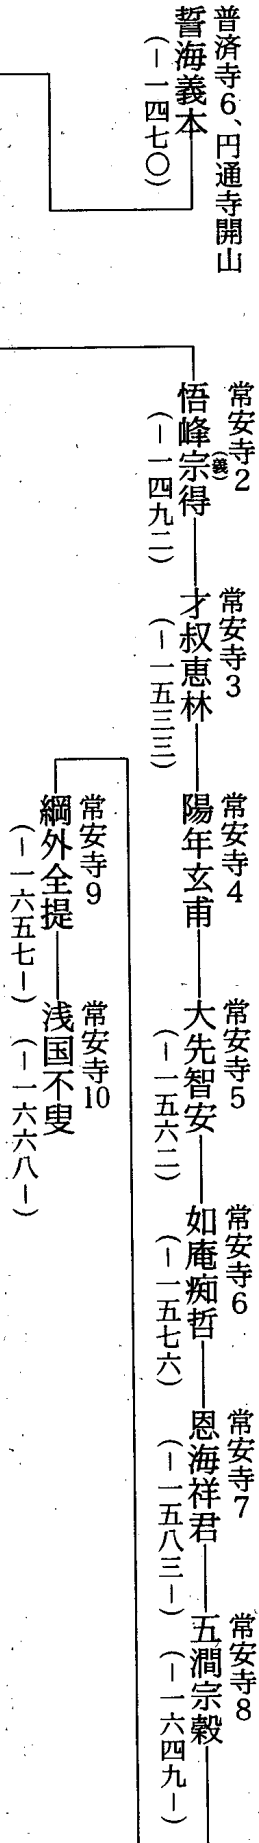 普済寺6、円通寺開山
誓海義本
（－一四七〇）
常安寺2
悟峰宗得
（義）
（－一四九二）
常安寺3
才叔恵林
（－一五三三）
常安寺4
陽年玄甫
常安寺5
大先智安
（－一五六二）
常安寺6
如庵痴哲
（－一五七六）
常安寺7
恩海祥君
（－一五八三－）
常安寺8
五澗宗穀
（－一六四九－）
常安寺9
綱外全提
（－一六五七－）
常安寺10
浅国不叟
（－一六六八－）